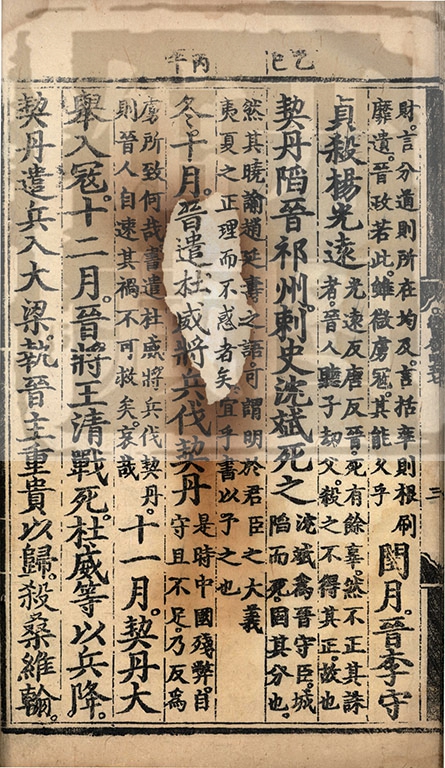 乙巳
丙午
財言分道則所在均及言括率則根刷
靡遺晉政若此雖微虜寇其能久乎
閏月。晉李守
貞殺楊光遠
光遠反唐反晉死有餘辜然不正其誅
者晉人聽子劫父殺之不得其正故也
契丹陷晉祁州刺史沈斌死之
沈斌為晉守臣城
陷而死固其分也
然其曉諭趙延壽之語可謂明於君臣之大義
夷夏之正理而不惑者矣宜乎書以予之也
冬十月。晉遣杜威將兵伐契丹
是時中國殘弊自
守且不足乃反為
虜所致何哉書遣杜威將兵伐契丹
則晉人自速其禍不可救矣哀哉
十一月。契丹大
舉入寇。十二月。晉將王清戰死。杜威等以兵降。
契丹遣兵入大梁。執晉主重貴以歸。殺桑維翰。
三